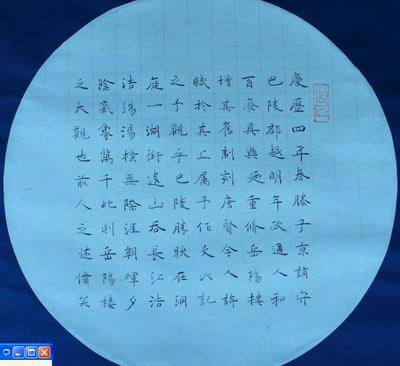 慶歷四年春滕子京謫守
巴陵郡越明年政通人和
百廢具興廼重修岳陽樓
增其舊制刻唐賢今人詩
賦於其上属予作文以記
之予觀乎巴陵勝狀在洞
庭一湖銜遠山吞長江浩
浩湯湯橫無際涯朝暉夕
陰氣象萬千此則岳陽樓
之大觀也前人之述備矣